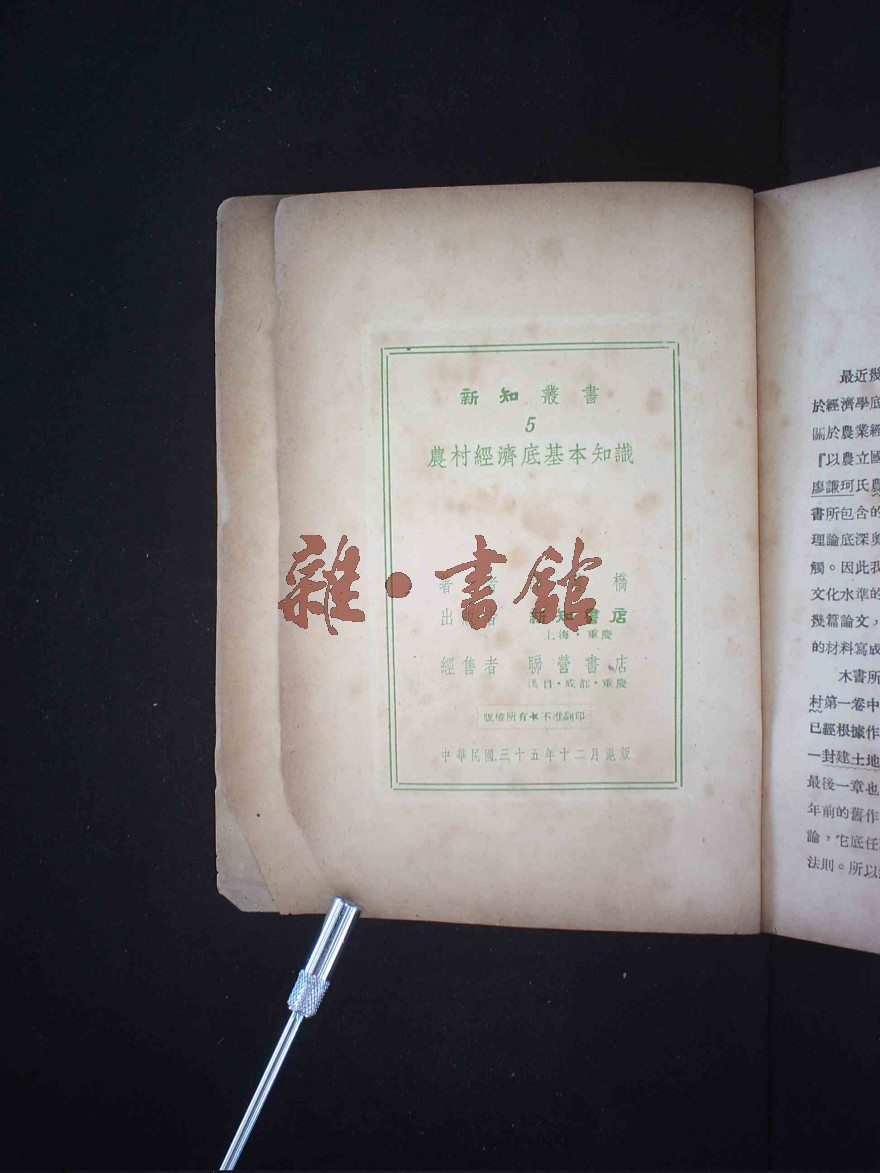 新知叢書
5
農村經濟底基本知識
雜·書館
著者 橋
出版者 新知書店
上海·重慶
經售者 聯營書店
漢口·成都·重慶
版權所有★不准翻印
中華民國三十五年十二月滬版
最近幾
於經濟學底
關於農業經
『以農立國
廖謙珂氏農
書所包含的
理論底深奧
觸。因此我
文化水準的
幾篇論文，
的材料寫成
木書所
村第一卷中
已經根據作
一封建土地
最後一章也
年前的舊作
論，它底任
法則。所以